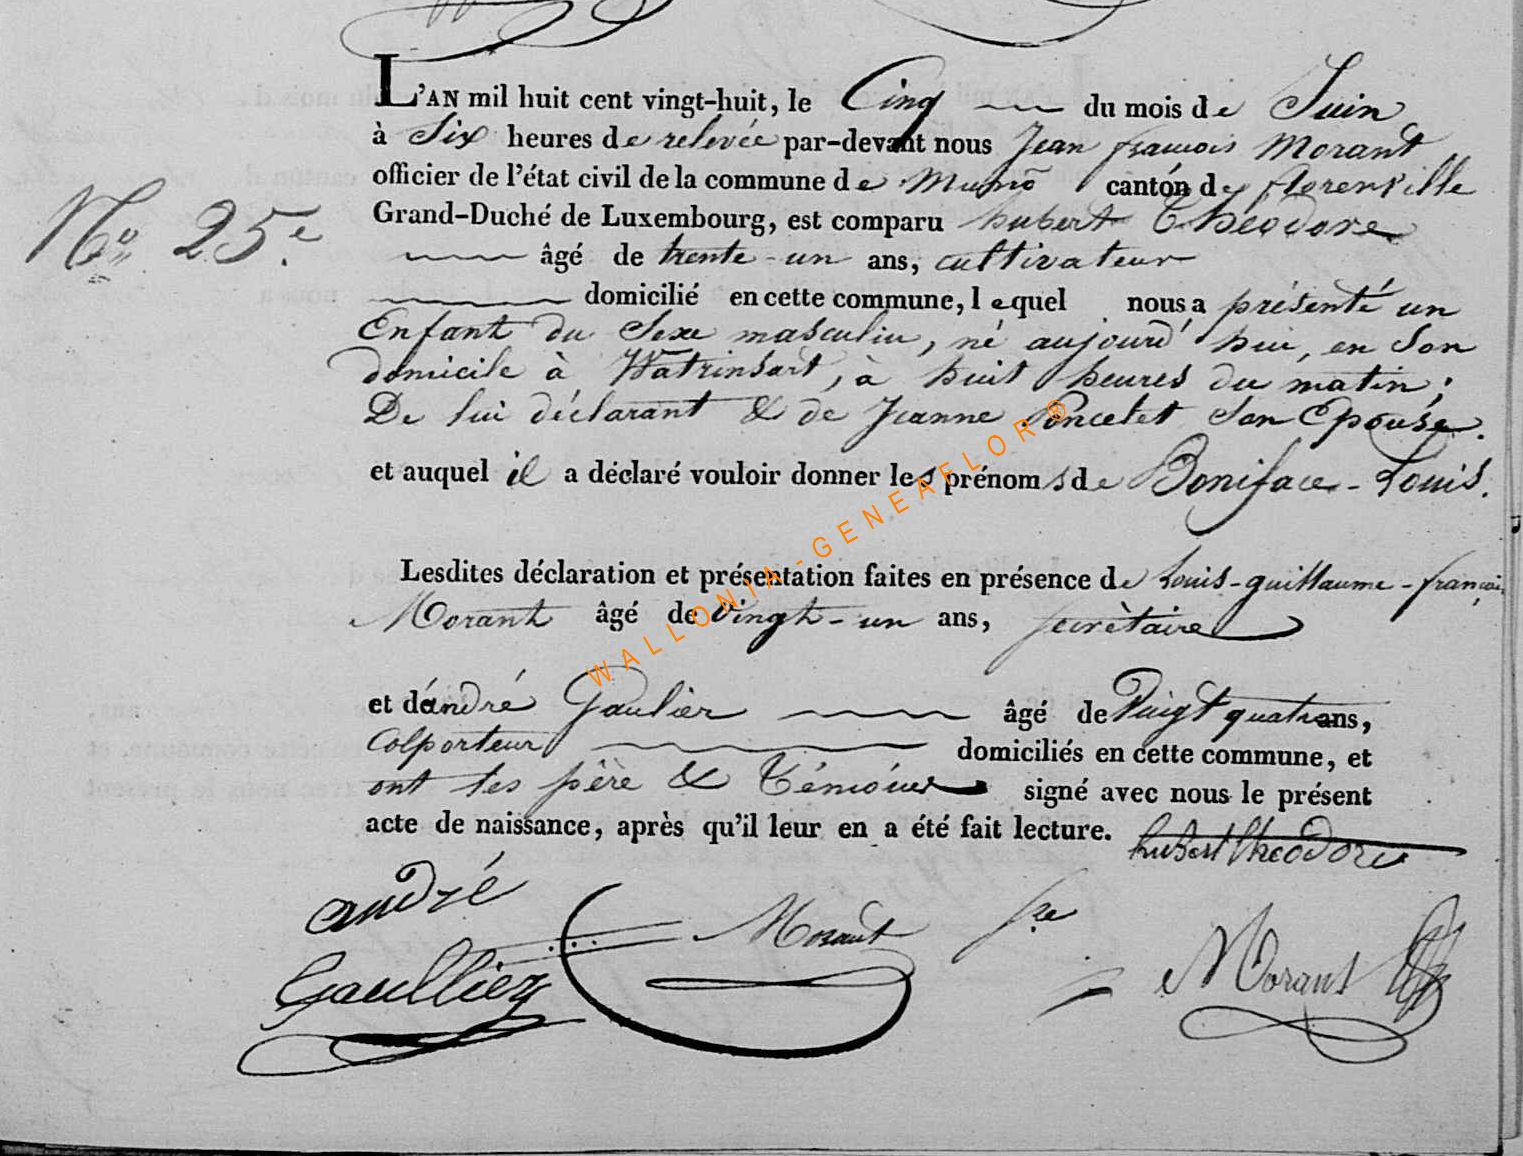 L'AN mil huit cent vingt-huit, le Cinq du mois de Juin
à Six heures de relevée par-devant nous Jean françois Morant
officier de l'état civil de la commune de Muno canton de florenville
Nº 25.e
Grand-Duché de Luxembourg, est comparu hubert Théodore
âgé de trente-un ans, cultivateur
domicilié en cette commune, lequel nous a présenté un
Enfant du Sexe masculin, né aujourd'hui, en Son
domicile à Watrinsart, à huit heures du matin;
De lui déclarant & de Jeanne Poncelet Son Epouse.
et auquel il a déclaré vouloir donner les prénoms de Boniface-Louis.
Lesdites déclaration et présentation faites en présence de Louis-guillaume-françois
Morant âgé de vingt-un ans, secrètaire
et d'andré Gaulier âgé de Vingt quatre ans,
Colporteur domiciliés en cette commune, et
ont les père & Témoins signé avec nous le présent
acte de naissance, après qu'il leur en a été fait lecture.
hubert theodore
andré
Gaulliez
Morant sre
Morant
WALLONIA-GENEAFLOR®